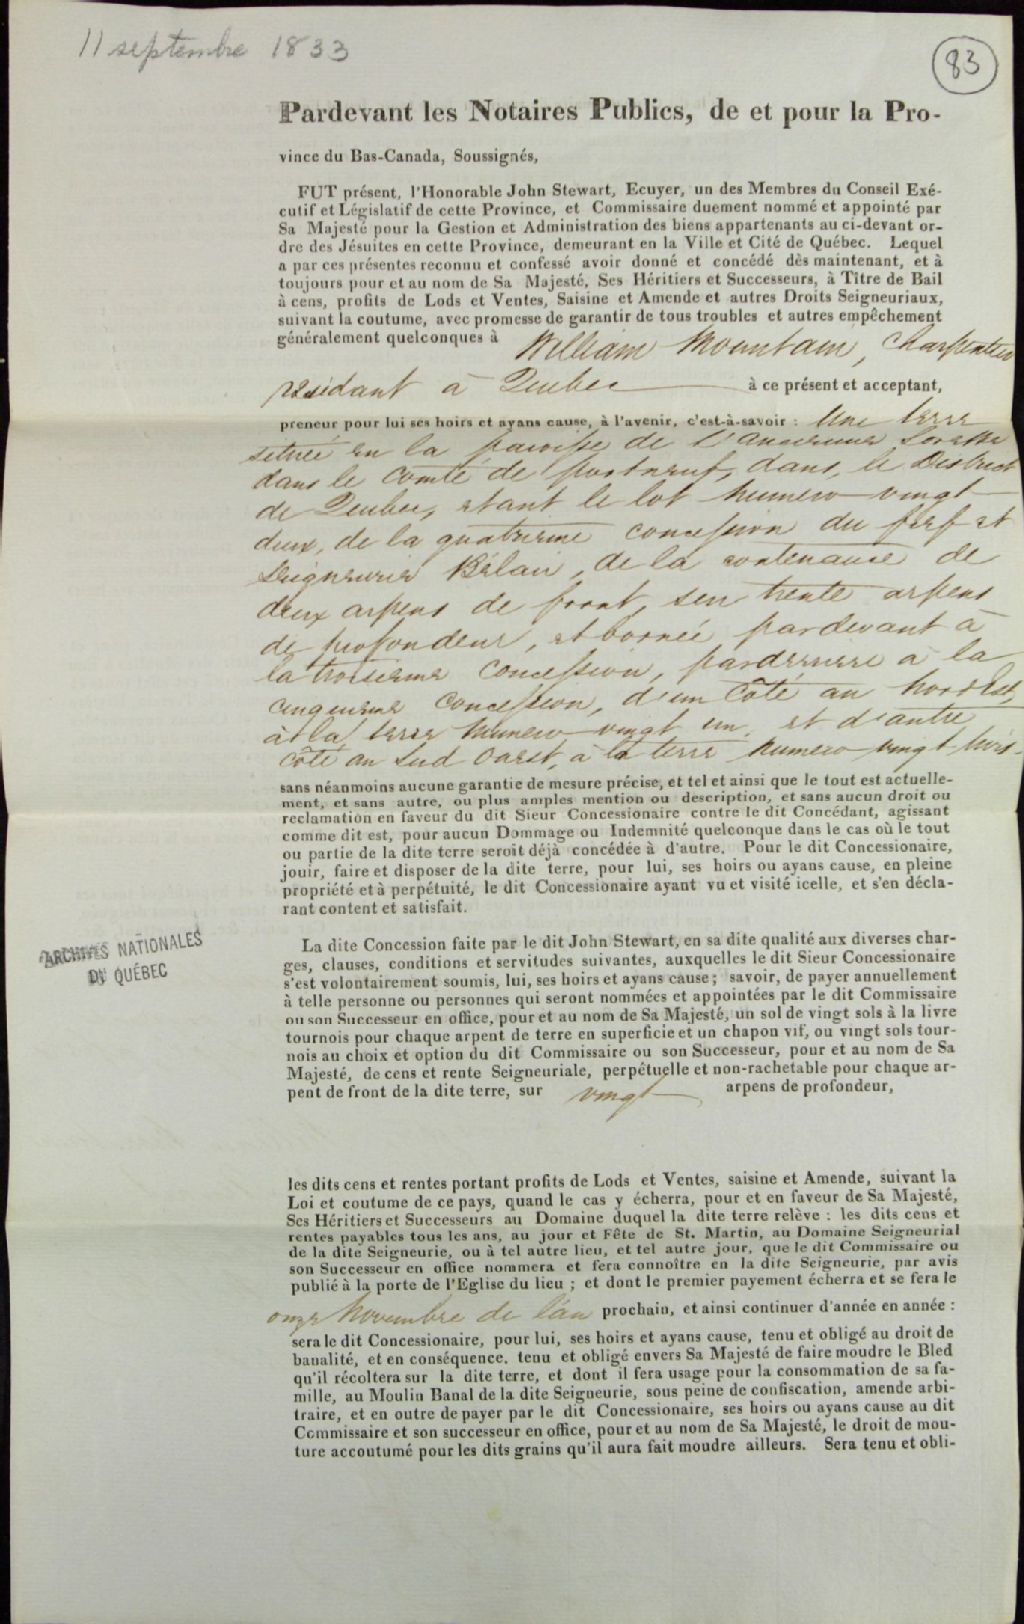 11 septembre 1833
83
Pardevant les Notaires Publics, de et pour la Pro-
vince du Bas-Canada, Soussignés,
FUT présent, l'Honorable John Stewart, Ecuyer, un des Membres du Conseil Exé-
cutif et Législatif de cette Province, et Commissaire duement nommé et appointé par
Sa Majesté pour la Gestion et Administration des biens appartenants au ci-devant or-
dre des Jésuites en cette Province, demeurant en la Ville et Cité de Québec. Lequel
a par ces présentes reconnu et confessé avoir donné et concédé dès maintenant, et à
toujours pour et au nom de Sa Majesté, Ses Héritiers et Successeurs, à Titre de Bail
à cens, profits de Lods et Ventes, Saisine et Amende et autres Droits Seigneuriaux,
suivant la coutume, avec promesse de garantir de tous troubles et autres empêchement
généralement quelconques à William Mountain, Charpentier
résidant à Quebec à ce présent et acceptant,
preneur pour lui ses hoirs et ayans cause, à l'avenir, c'est-à-savoir : Une terre
située en la paroisse de l'ancienne Lorette
dans le comté de portneuf, dans le District
de Quebec, etant le lot numero vingt
deux, de la quatrieme concession du fief et
Seigneurie Bélair, de la contenance de
deux arpens de front, seu trente arpens
de profondeur, et bornée pardevant à
la troisieme concession, parderriere à la
cinquieme concession, d'un côté au Nord Est,
à la terre numero vingt un, et d'autre
côté au Sud Ouest, à la terre numero vingt trois
sans néanmoins aucune garantie de mesure précise, et tel et ainsi que le tout est actuelle-
ment, et sans autre, ou plus amples mention ou description, et sans aucun droit ou
reclamation en faveur du dit Sieur Concessionaire contre le dit Concédant, agissant
comme dit est, pour aucun Dommage ou Indemnité quelconque dans le cas où le tout
ou partie de la dite terre seroit déjà concédée à d'autre. Pour le dit Concessionaire,
jouir, faire et disposer de la dite terre, pour lui, ses hoirs ou ayans cause, en pleine
propriété et à perpétuité, le dit Concessionaire ayant vu et visité icelle, et s'en décla-
rant content et satisfait.
La dite Concession faite par le dit John Stewart, en sa dite qualité aux diverses char-
ges, clauses, conditions et servitudes suivantes, auxquelles le dit Sieur Concessionaire
s'est volontairement soumis, lui, ses hoirs et ayans cause; savoir, de payer annuellement
à telle personne ou personnes qui seront nommées et appointées par le dit Commissaire
ou son Successeur en office, pour et au nom de Sa Majesté, un sol de vingt sols à la livre
tournois pour chaque arpent de terre en superficie et un chapon vif, ou vingt sols tour-
nois au choix et option du dit Commissaire ou son Successeur, pour et au nom de Sa
Majesté, de cens et rente Seigneuriale, perpétuelle et non-rachetable pour chaque ar-
pent de front de la dite terre, sur vingt arpens de profondeur,
ARCHIVES NATIONALES
DU QUÉBEC
les dits cens et rentes portant profits de Lods et Ventes, saisine et Amende, suivant la
Loi et coutume de ce pays, quand le cas y écherra, pour et en faveur de Sa Majesté,
Ses Héritiers et Successeurs au Domaine duquel la dite terre relève : les dits cens et
rentes payables tous les ans, au jour et Fête de St. Martin, au Domaine Seigneurial
de la dite Seigneurie, ou à tel autre lieu, et tel autre jour, que le dit Commissaire ou
son Successeur en office nommera et fera connoître en la dite Seigneurie, par avis
publié à la porte de l'Eglise du lieu ; et dont le premier payement écherra et se fera le
onze Novembre de l'an prochain, et ainsi continuer d'année en année :
sera le dit Concessionaire, pour lui, ses hoirs et ayans cause, tenu et obligé au droit de
banalité, et en conséquence. tenu et obligé envers Sa Majesté de faire moudre le Bled
qu'il récoltera sur la dite terre, et dont il fera usage pour la consommation de sa fa-
mille, au Moulin Banal de la dite Seigneurie, sous peine de confiscation, amende arbi-
traire, et en outre de payer par le dit Concessionaire, ses hoirs ou ayans cause au dit
Commissaire et son successeur en office, pour et au nom de Sa Majesté, le droit de mou-
ture accoutumé pour les dits grains qu'il aura fait moudre ailleurs. Sera tenu et obli-